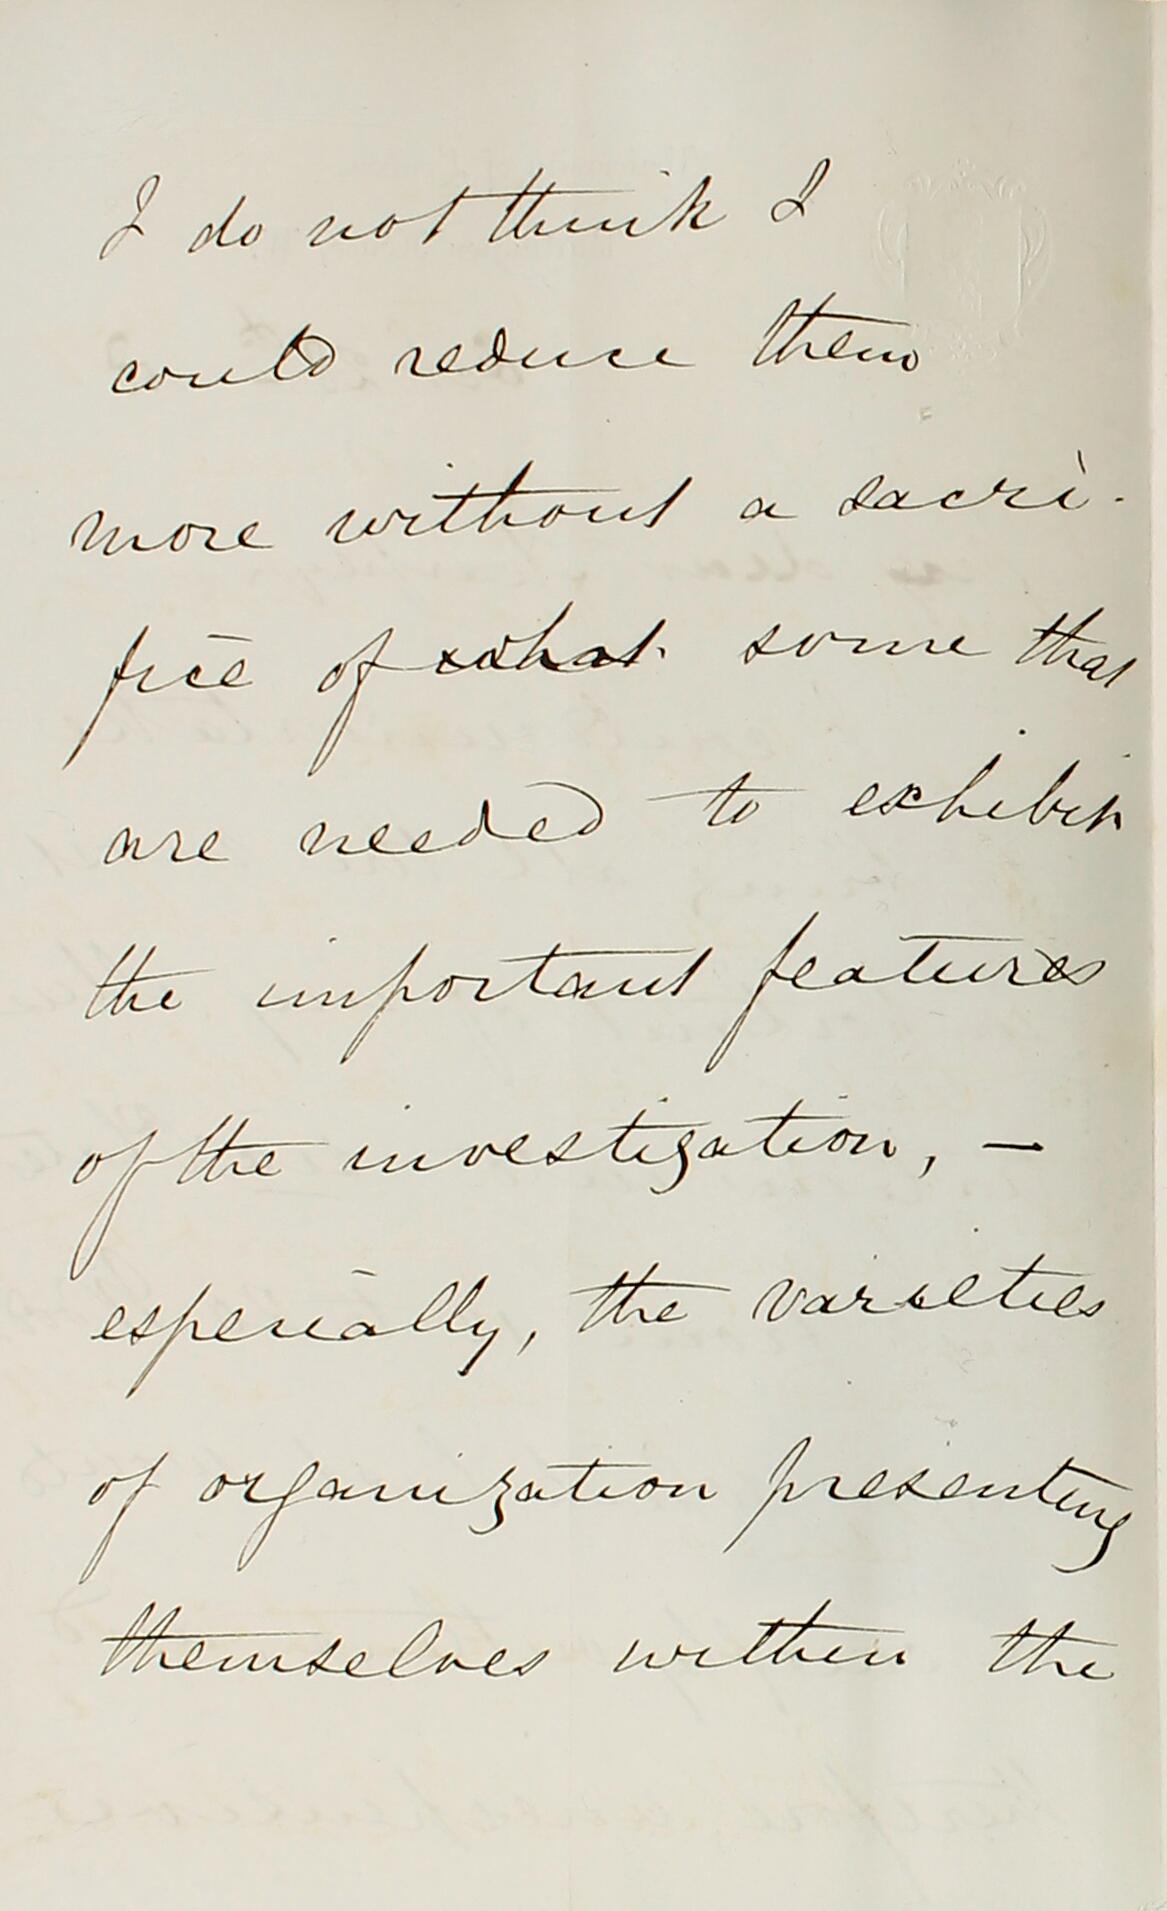 I do not think I
could reduce them
more without a sacri-
fice of what some that
are needed to exhibit
the important features
of the investigation, —
especially, the varieties
of organization presenting
themselves within the